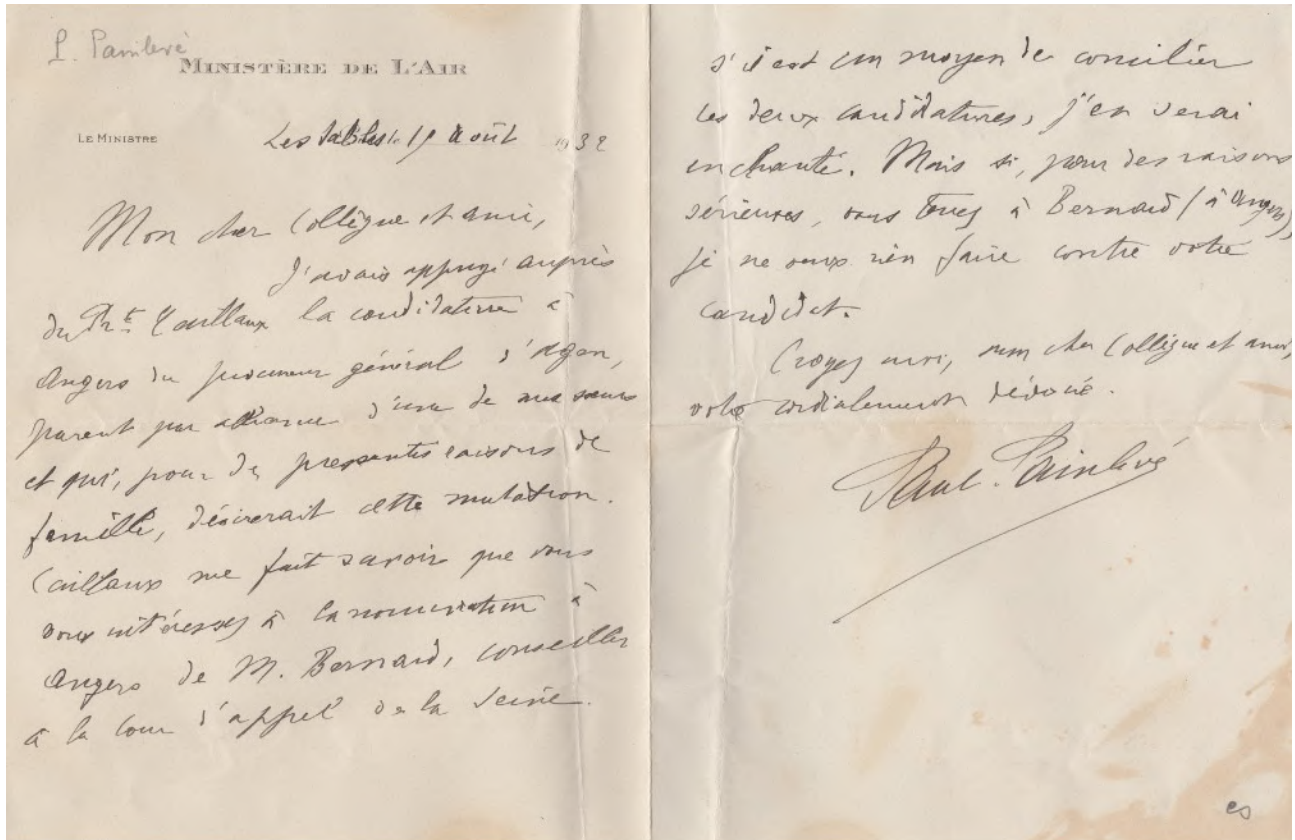 P. Painlevé
MINISTÈRE DE L'AIR
LE MINISTRE
Les Sables le 19 Août 1932
Mon cher Collègue et ami,
J'avais appuyé auprès
du Pr.t Caillaux la candidature à
Angers du procureur général d'Agen,
parent par alliance d'une de mes sœurs
et qui, pour de pressantes raisons de
famille, désirerait cette mutation.
Caillaux me fait savoir que vous
vous intéressez à la nomination à
Angers de M. Bernard, conseiller
à la Cour d'appel de la Seine.
S'il est un moyen de concilier
les deux candidatures, j'en serai
enchanté. Mais si, pour des raisons
sérieuses, vous tenez à Bernard (à Angers),
je ne veux rien faire contre votre
candidat.
Croyez moi, mon cher Collègue et ami,
votre cordialement dévoué.
Paul Painlevé